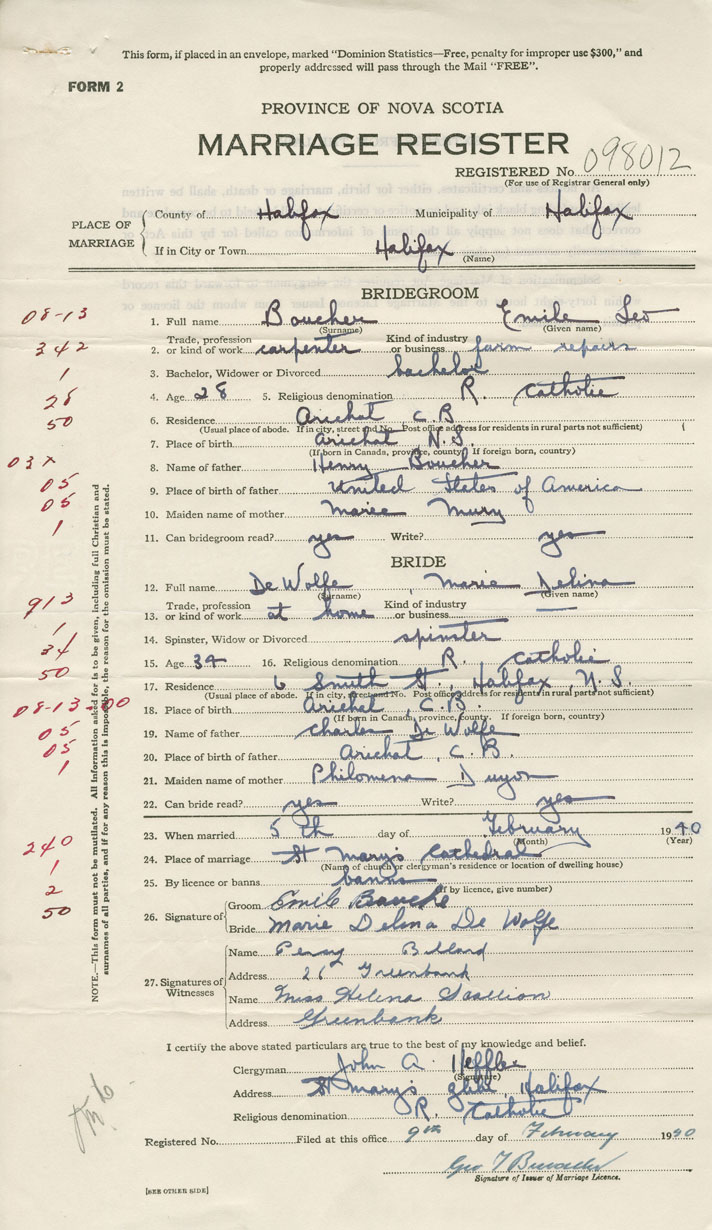 This form, if placed in an envelope, marked "Dominion Statistics—Free, penalty for improper use $300," and
properly addressed will pass through the Mail "FREE".
FORM 2
PROVINCE OF NOVA SCOTIA
MARRIAGE REGISTER
REGISTERED No. 098012
(For use of Registrar General only)
PLACE OF MARRIAGE
County of Halifax Municipality of Halifax
If in City or Town Halifax
(Name)
BRIDEGROOM
08-13
1. Full name Boucher Emile Leo
(Surname) (Given name)
342
2. Trade, profession or kind of work carpenter Kind of industry or business farm repairs
1
3. Bachelor, Widower or Divorced bachelor
28
4. Age 28 5. Religious denomination R. Catholic
50
6. Residence Arichat C.B.
(Usual place of abode. If in city, street and No. Post office address for residents in rural parts not sufficient)
7. Place of birth Arichat N.S.
(If born in Canada, province, county. If foreign born, country)
03X
8. Name of father Henry Boucher
05
9. Place of birth of father United States of America
05
10. Maiden name of mother Mariee
1
11. Can bridegroom read? yes Write? yes
BRIDE
12. Full name De Wolfe Marie Delina
(Surname) (Given name)
913
13. Trade, profession or kind of work at home Kind of industry or business —
1
14. Spinster, Widow or Divorced spinster
34
15. Age 34 16. Religious denomination R. Catholic
50
17. Residence 6 Smith St., Halifax, N.S.
(Usual place of abode. If in city, street and No. Post office address for residents in rural parts not sufficient)
08-13-00
18. Place of birth Arichat, C.B.
(If born in Canada, province, county. If foreign born, country)
05
19. Name of father Charles De Wolfe
05
20. Place of birth of father Arichat, C.B.
1
21. Maiden name of mother Philomena
22. Can bride read? yes Write? yes
23. When married 5th day of February 1940
(Month) (Year)
240
24. Place of marriage St Mary's Cathedral
(Name of church or clergyman's residence or location of dwelling house)
1
25. By licence or banns banns
(If by licence, give number)
2
50
26. Signature of
Groom Emile Bouche
Bride Marie Delina De Wolfe
27. Signatures of Witnesses
Name Percy
Address 26 Greenbank
Name Miss Helena Scallion
Address Greenbank
I certify the above stated particulars are true to the best of my knowledge and belief.
Clergyman John A.
(Signature)
Address St Mary's glebe, Halifax
Religious denomination R. Catholic
Registered No. Filed at this office 9th day of February 1940
Geo T
Signature of Issuer of Marriage Licence.
[SEE OTHER SIDE]
NOTE.—This form must not be mutilated. All Information asked for is to be given, including full Christian and
surnames of all parties, and if for any reason this is impossible, the reason for the omission must be stated.